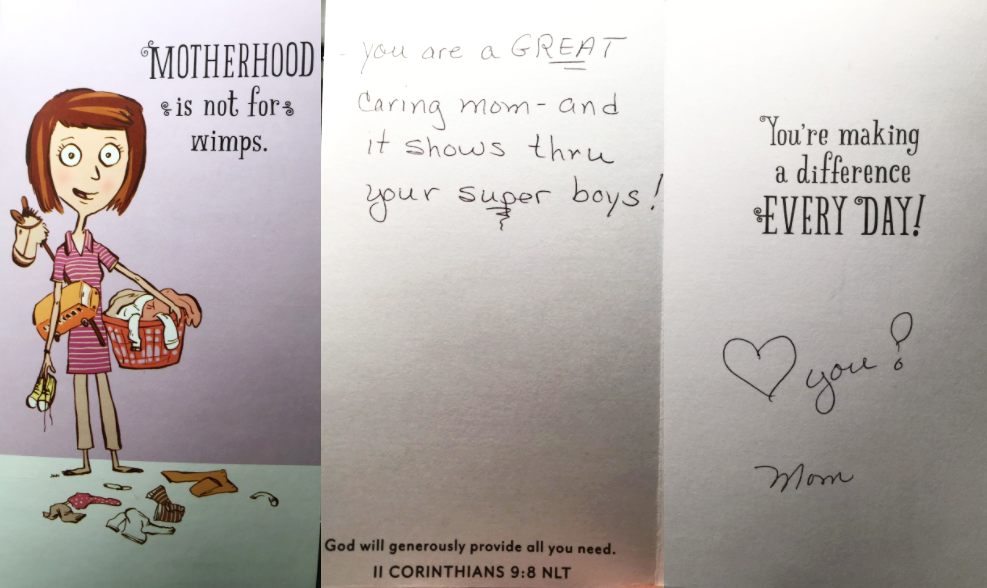 MOTHERHOOD
is not for
wimps.
- you are a GREAT
caring mom - and
it shows thru
your super boys!
God will generously provide all you need.
II CORINTHIANS 9:8 NLT
You're making
a difference
EVERY DAY!
♡ you!
Mom